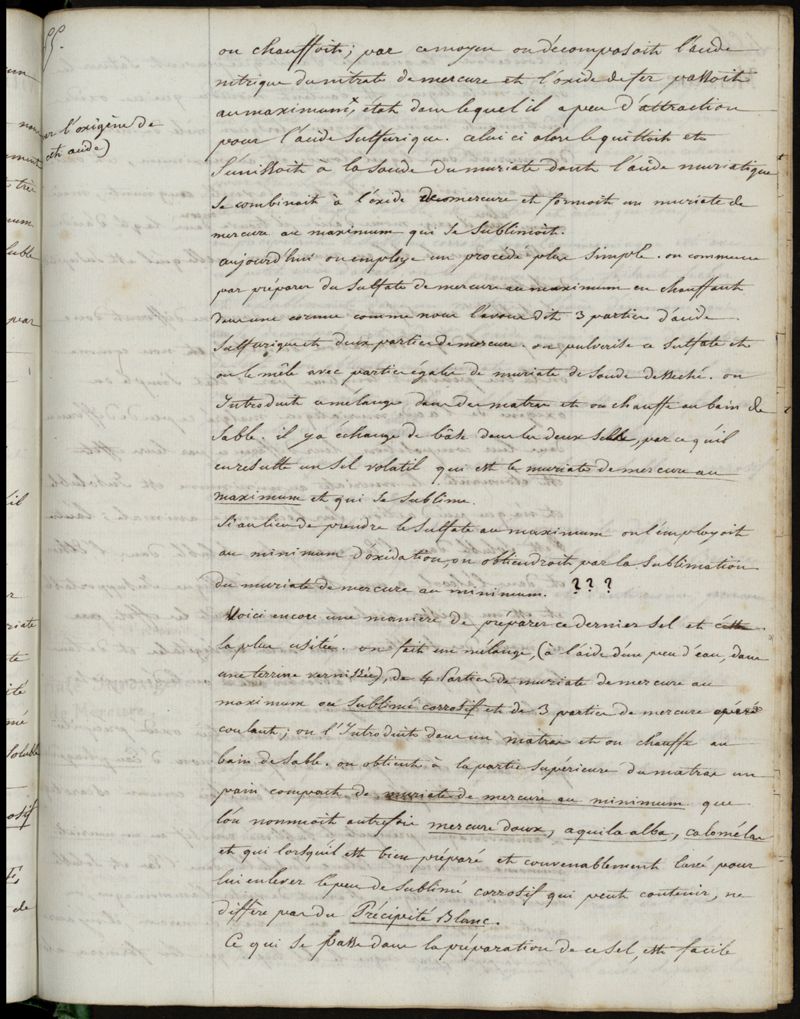 55.
ou chauffoit; par ce moyen on décomposoit l'acide
nitrique du nitrate de mercure et l'oxide de fer passoit
au maximum, état dans lequel il a peu d'attraction
par l'oxigène de
cet acide)
pour l'acide sulfurique. celui ci alors le quittoit et
S'unissoit à la Soude du muriate dont l'acide muriatique
Se combinoit à l'oxide de mercure et formoit un muriate de
mercure au maximum qui se Sublimoit.
aujourd'hui on employe un procédé plus Simple. on commence
par préparer du Sulfate de mercure au maximum en chauffant
dans une cornue comme nous l'avons dit 3 parties d'acide
Sulfurique et deux parties de mercure. on pulvérise ce Sulfate et
on le mêle avec partie égale de muriate de Soude desséché. on
Introduit ce mélange dans des matras et on chauffe au bain de
Sable. il y a échange de bâse dans les deux Sels, parce qu'il
en resulte un Sel volatil qui est le muriate de mercure au
maximum et qui se Sublime.
Si au lieu de prendre le Sulfate au maximum on l'employoit
au minimum d'oxidation, on obtiendroit par la Sublimation
du muriate de mercure au minimum. ???
Voici encore une manière de préparer ce dernier Sel et
la plus usitée. on fait un mélange, (à l'aide d'un peu d'eau, dans
une terrine vernissée), de 4 Parties de muriate de mercure au
maximum ou Sublimé corrosif et de 3 parties de mercure
coulant; on l'Introduit dans un matras et on chauffe au
bain de Sable. on obtient à la partie Supérieure du matras un
pain composé de muriate de mercure au minimum que
l'on nommoit autrefois mercure doux, aquila alba, calomélas
et qui lorsqu'il est bien préparé et convenablement lavé pour
lui enlever le peu de Sublimé corrosif qui peut contenir, ne
diffère pas du Précipité Blanc.
Ce qui se passe dans la préparation de ce sel, est facile